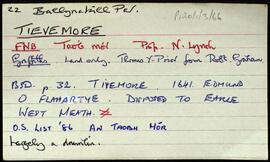 22 Ballynakill Par.
P120/1/3/66
TIEVEMORE
FNB. Taob mór Prop. N. Lynch
Griffiths Land only. Thomas Y. Prior from Robt Graham
BSD. p 32. TIVEMORE. 1641. EDMUND
O FLAHARTYE. DISPOSED TO EARLE
WEST MEATH.
O.S. LIST '86 AN TAOBH MÓR
Largely a mountain.